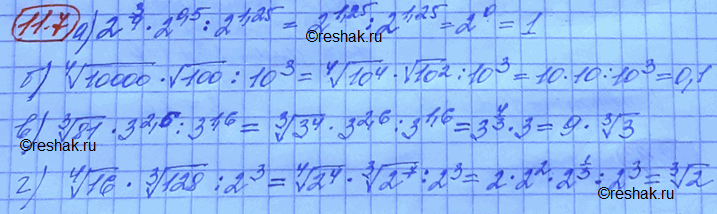 11.7 а) 2^(3/4) · 2^(0,5) : 2^(1,25) = 2^(1,25) : 2^(1,25) = 2^0 = 1
©reshak.ru
б) ⁴√10000 · √100 : 10³ = ⁴√10⁴ · √10² : 10³ = 10 · 10 : 10³ = 0,1
в) ³√81 · 3^(2,6) : 3^(1,6) = ³√3⁴ · 3^(2,6) : 3^(1,6) = 3^(4/3) · 3 = 9 · ³√3
г) ⁴√16 · ³√128 : 2³ = ⁴√2⁴ · ³√2⁷ : 2³ = 2 · 2² · 2^(1/3) : 2³ = ³√2
©reshak.ru